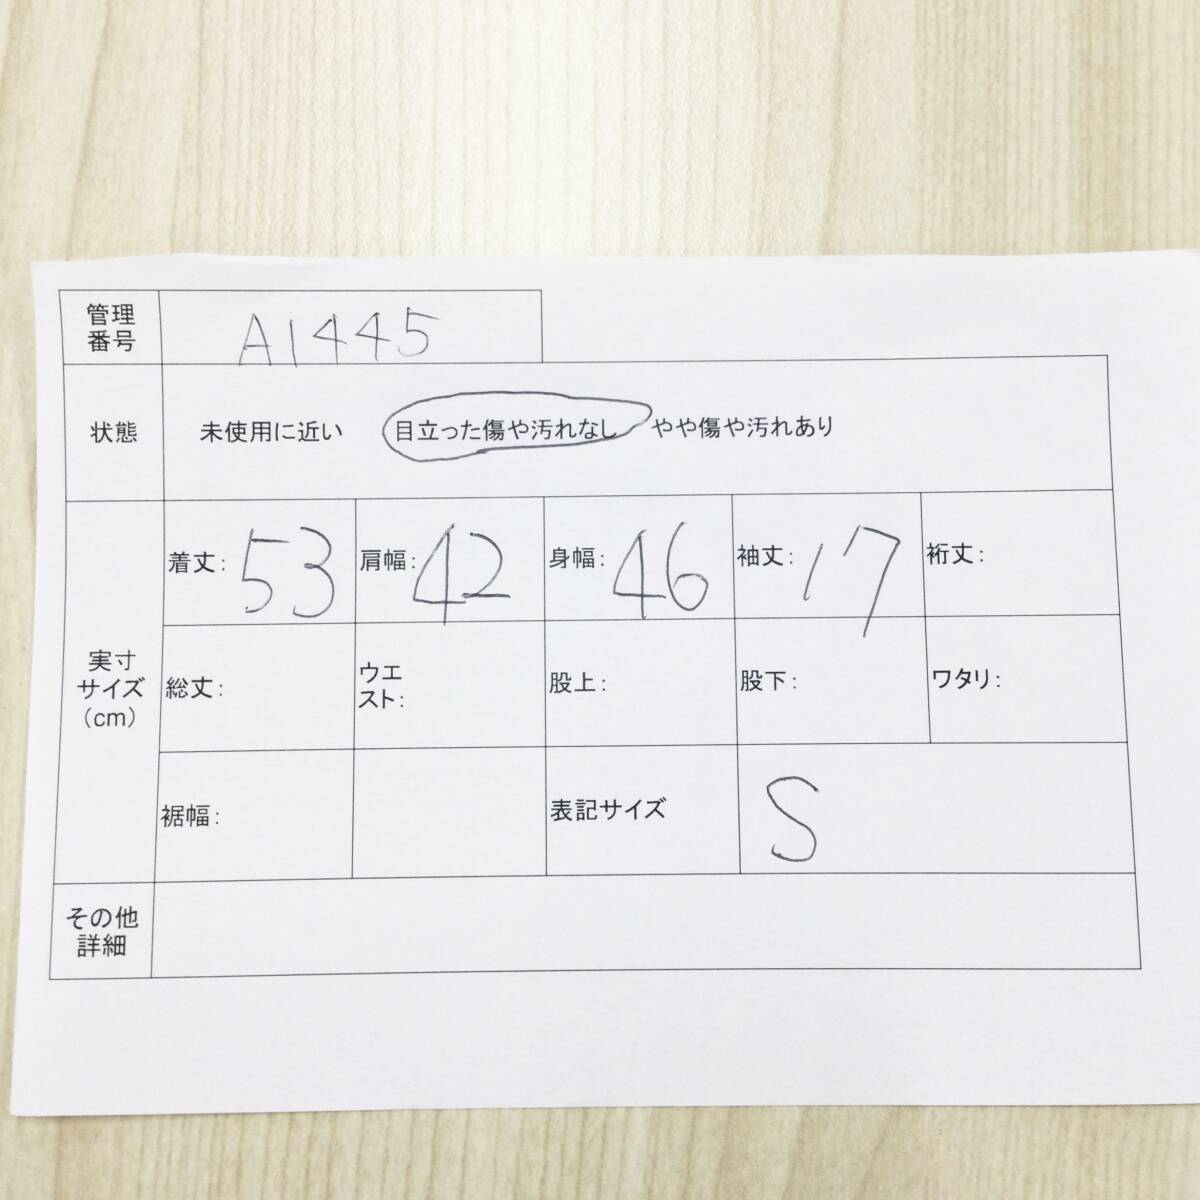 管理
番号
A1445
状態
未使用に近い 目立った傷や汚れなし やや傷や汚れあり
実寸
サイズ
(cm)
着丈: 53 肩幅: 42 身幅: 46 袖丈: 17 裄丈:
総丈: ウエ
スト: 股上: 股下: ワタリ:
裾幅: 表記サイズ S
その他
詳細